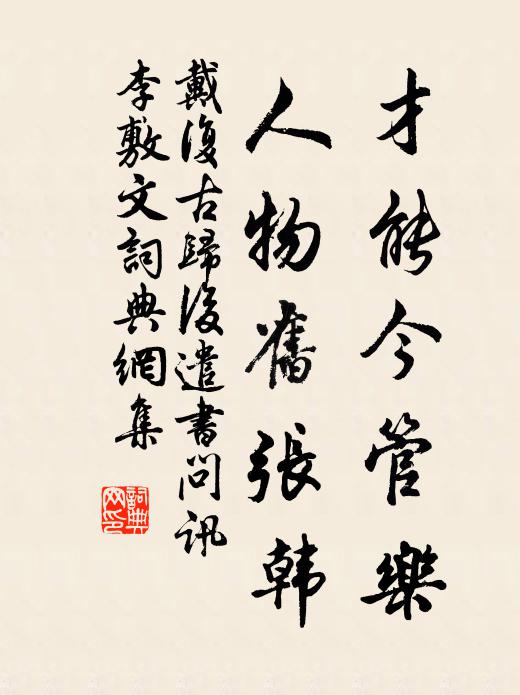 才能今管樂
人物舊張韓
戴復古歸後遣書問訊
李敷文詞典網集
詞典網印